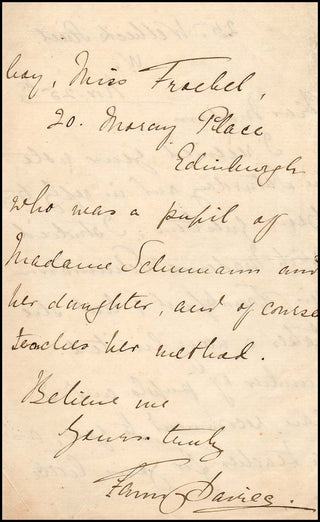 boy, Miss Froebel,
20. Moray Place
Edinburgh
who was a pupil of
Madame Schumann and
her daughter, and of course
teaches her method.
Believe me
Yours truly
Fanny Davies.